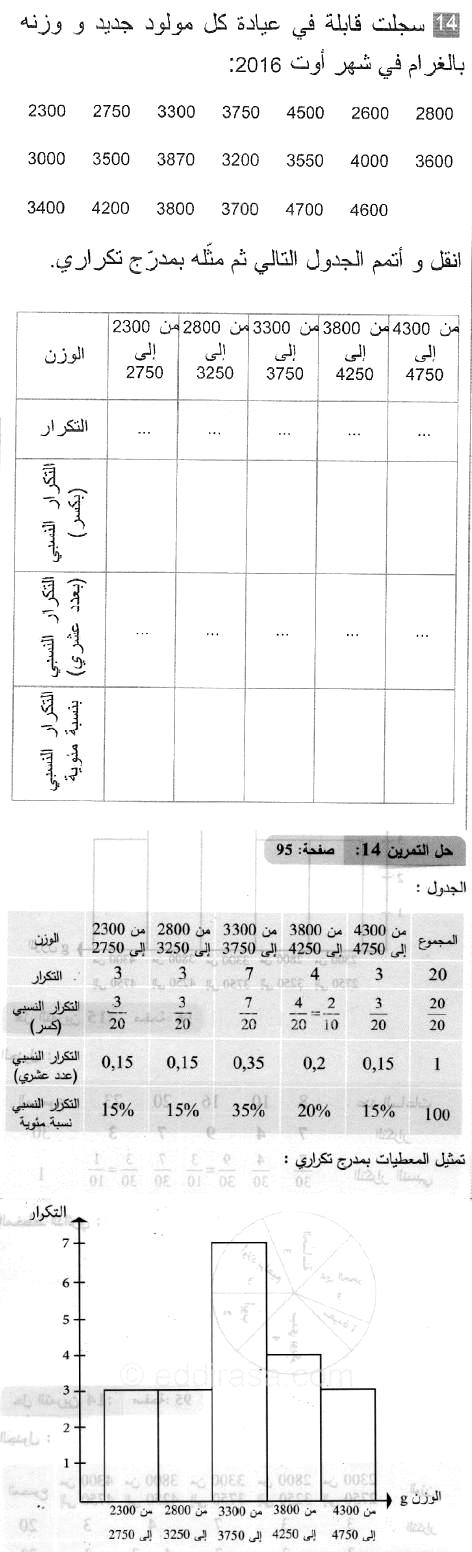 14 سجلت قابلة في عيادة كل مولود جديد و وزنه
بالغرام في شهر أوت 2016:
2300 2750 3300 3750 4500 2600 2800
3000 3500 3870 3200 3550 4000 3600
3400 4200 3800 3700 4700 4600
انقل و أتمم الجدول التالي ثم مثّله بمدرّج تكراري.
الوزن
من 2300 إلى 2750
من 2800 إلى 3250
من 3300 إلى 3750
من 3800 إلى 4250
من 4300 إلى 4750
التكرار ... ... ... ... ...
التكرار النسبي (بكسر)
التكرار النسبي (بعدد عشري) ... ... ... ... ...
التكرار النسبي بنسبة مئوية
حل التمرين 14: صفحة: 95
الجدول :
الوزن
من 2300 إلى 2750
من 2800 إلى 3250
من 3300 إلى 3750
من 3800 إلى 4250
من 4300 إلى 4750
المجموع
التكرار 3 3 7 4 3 20
التكرار النسبي (كسر) 3/20 3/20 7/20 4/20=2/10 3/20 20/20
التكرار النسبي (عدد عشري) 0,15 0,15 0,35 0,2 0,15 1
التكرار النسبي نسبة مئوية 15% 15% 35% 20% 15% 100
تمثيل المعطيات بمدرج تكراري :
التكرار
7
6
5
4
3
2
1
© eddirasa.com
من 2300 إلى 2750
من 2800 إلى 3250
من 3300 إلى 3750
من 3800 إلى 4250
من 4300 إلى 4750
الوزن g